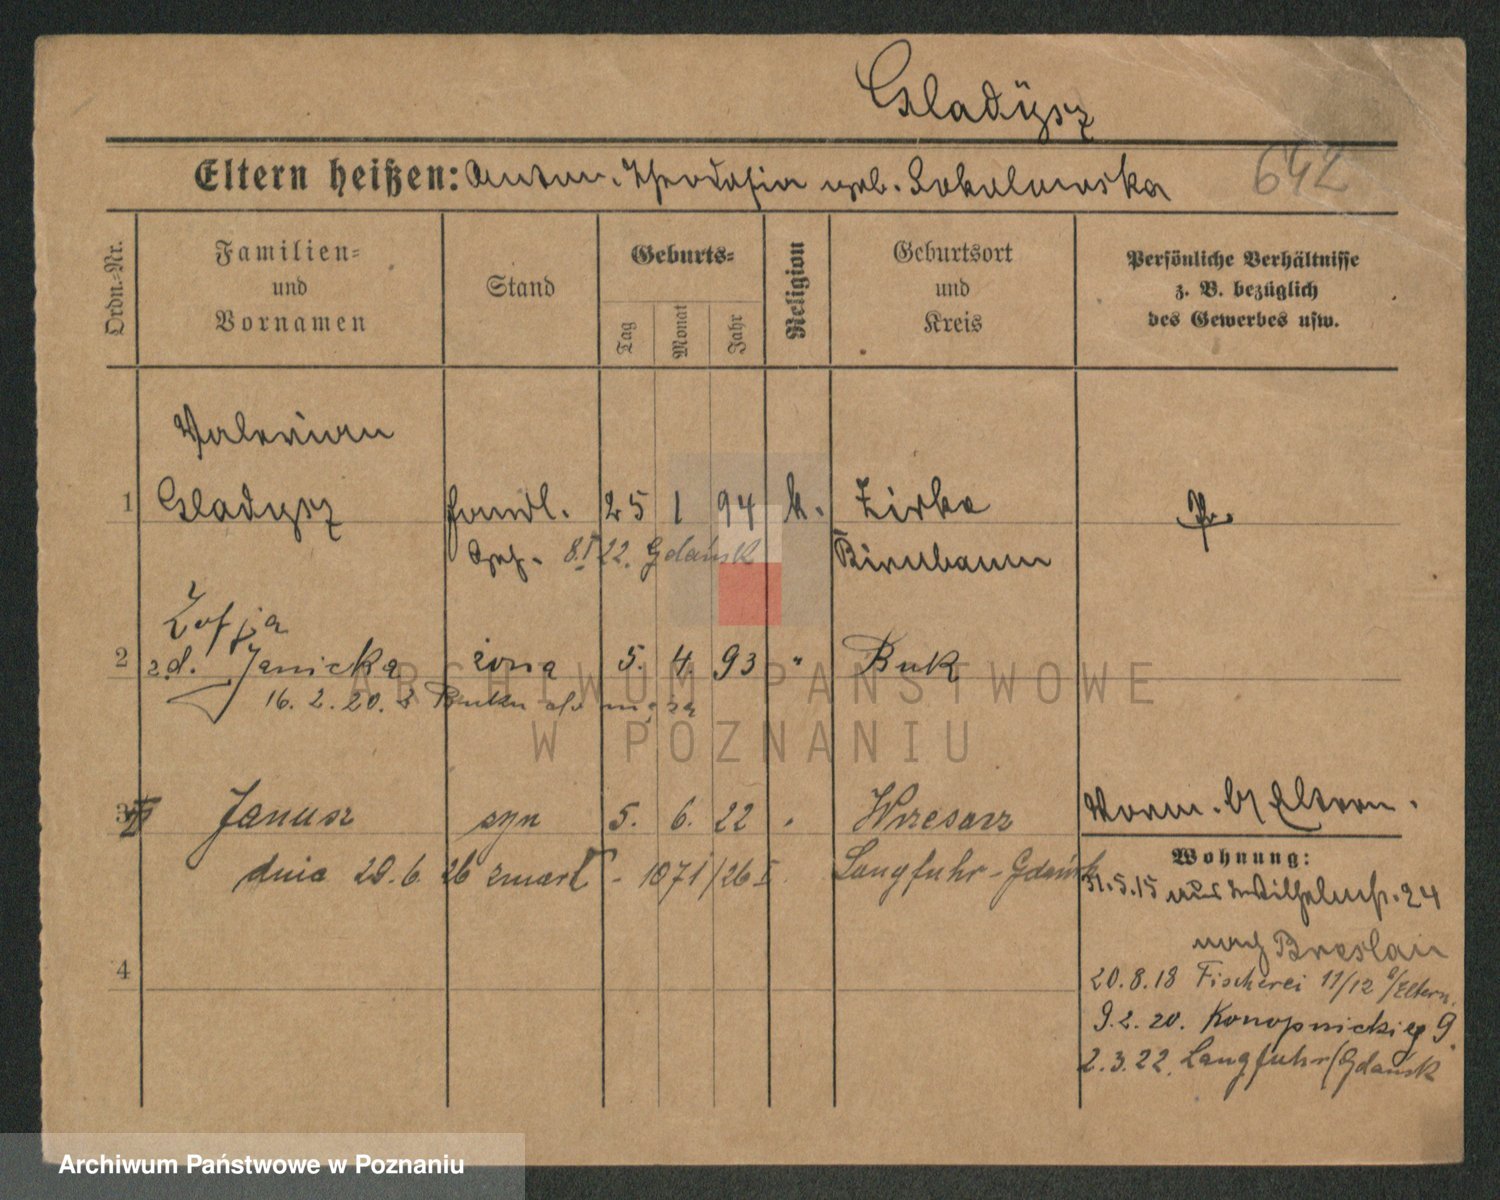 Gladysz
Eltern heißen: Anton. Theodosia geb. Sokolowska
642
Ordn.-Nr.
Familien-
und
Vornamen
Stand
Geburts-
Tag
Monat
Jahr
Religion
Geburtsort
und
Kreis
Persönliche Verhältnisse
z. B. bezüglich
des Gewerbes usw.
Valerian
1 Gladysz Handl. 25 1 94 k. Zirke Pr.
Geh. 8.I 22. Gdańsk Birnbaum
Zofja
2 z d. Janicka żona 5. 4. 93 " Buk
16. 2. 20. z Buku do męża
3 Janusz syn 5. 6. 22 " Wrzeszcz
Vorm. b/ Eltern.
dnia 20. 6. 26 zmarł - 1071/26 I Langfuhr-Gdańsk
Wohnung:
31.5.15 aus Wilhelmstr. 24
nach Breslau
4
20.8.18 Fischerei 11/12 b/Eltern.
9.2.20. Konopnickiej 9.
2.3.22. Langfuhr/Gdańsk
ARCHIWUM PAŃSTWOWE
W POZNANIU
Archiwum Państwowe w Poznaniu